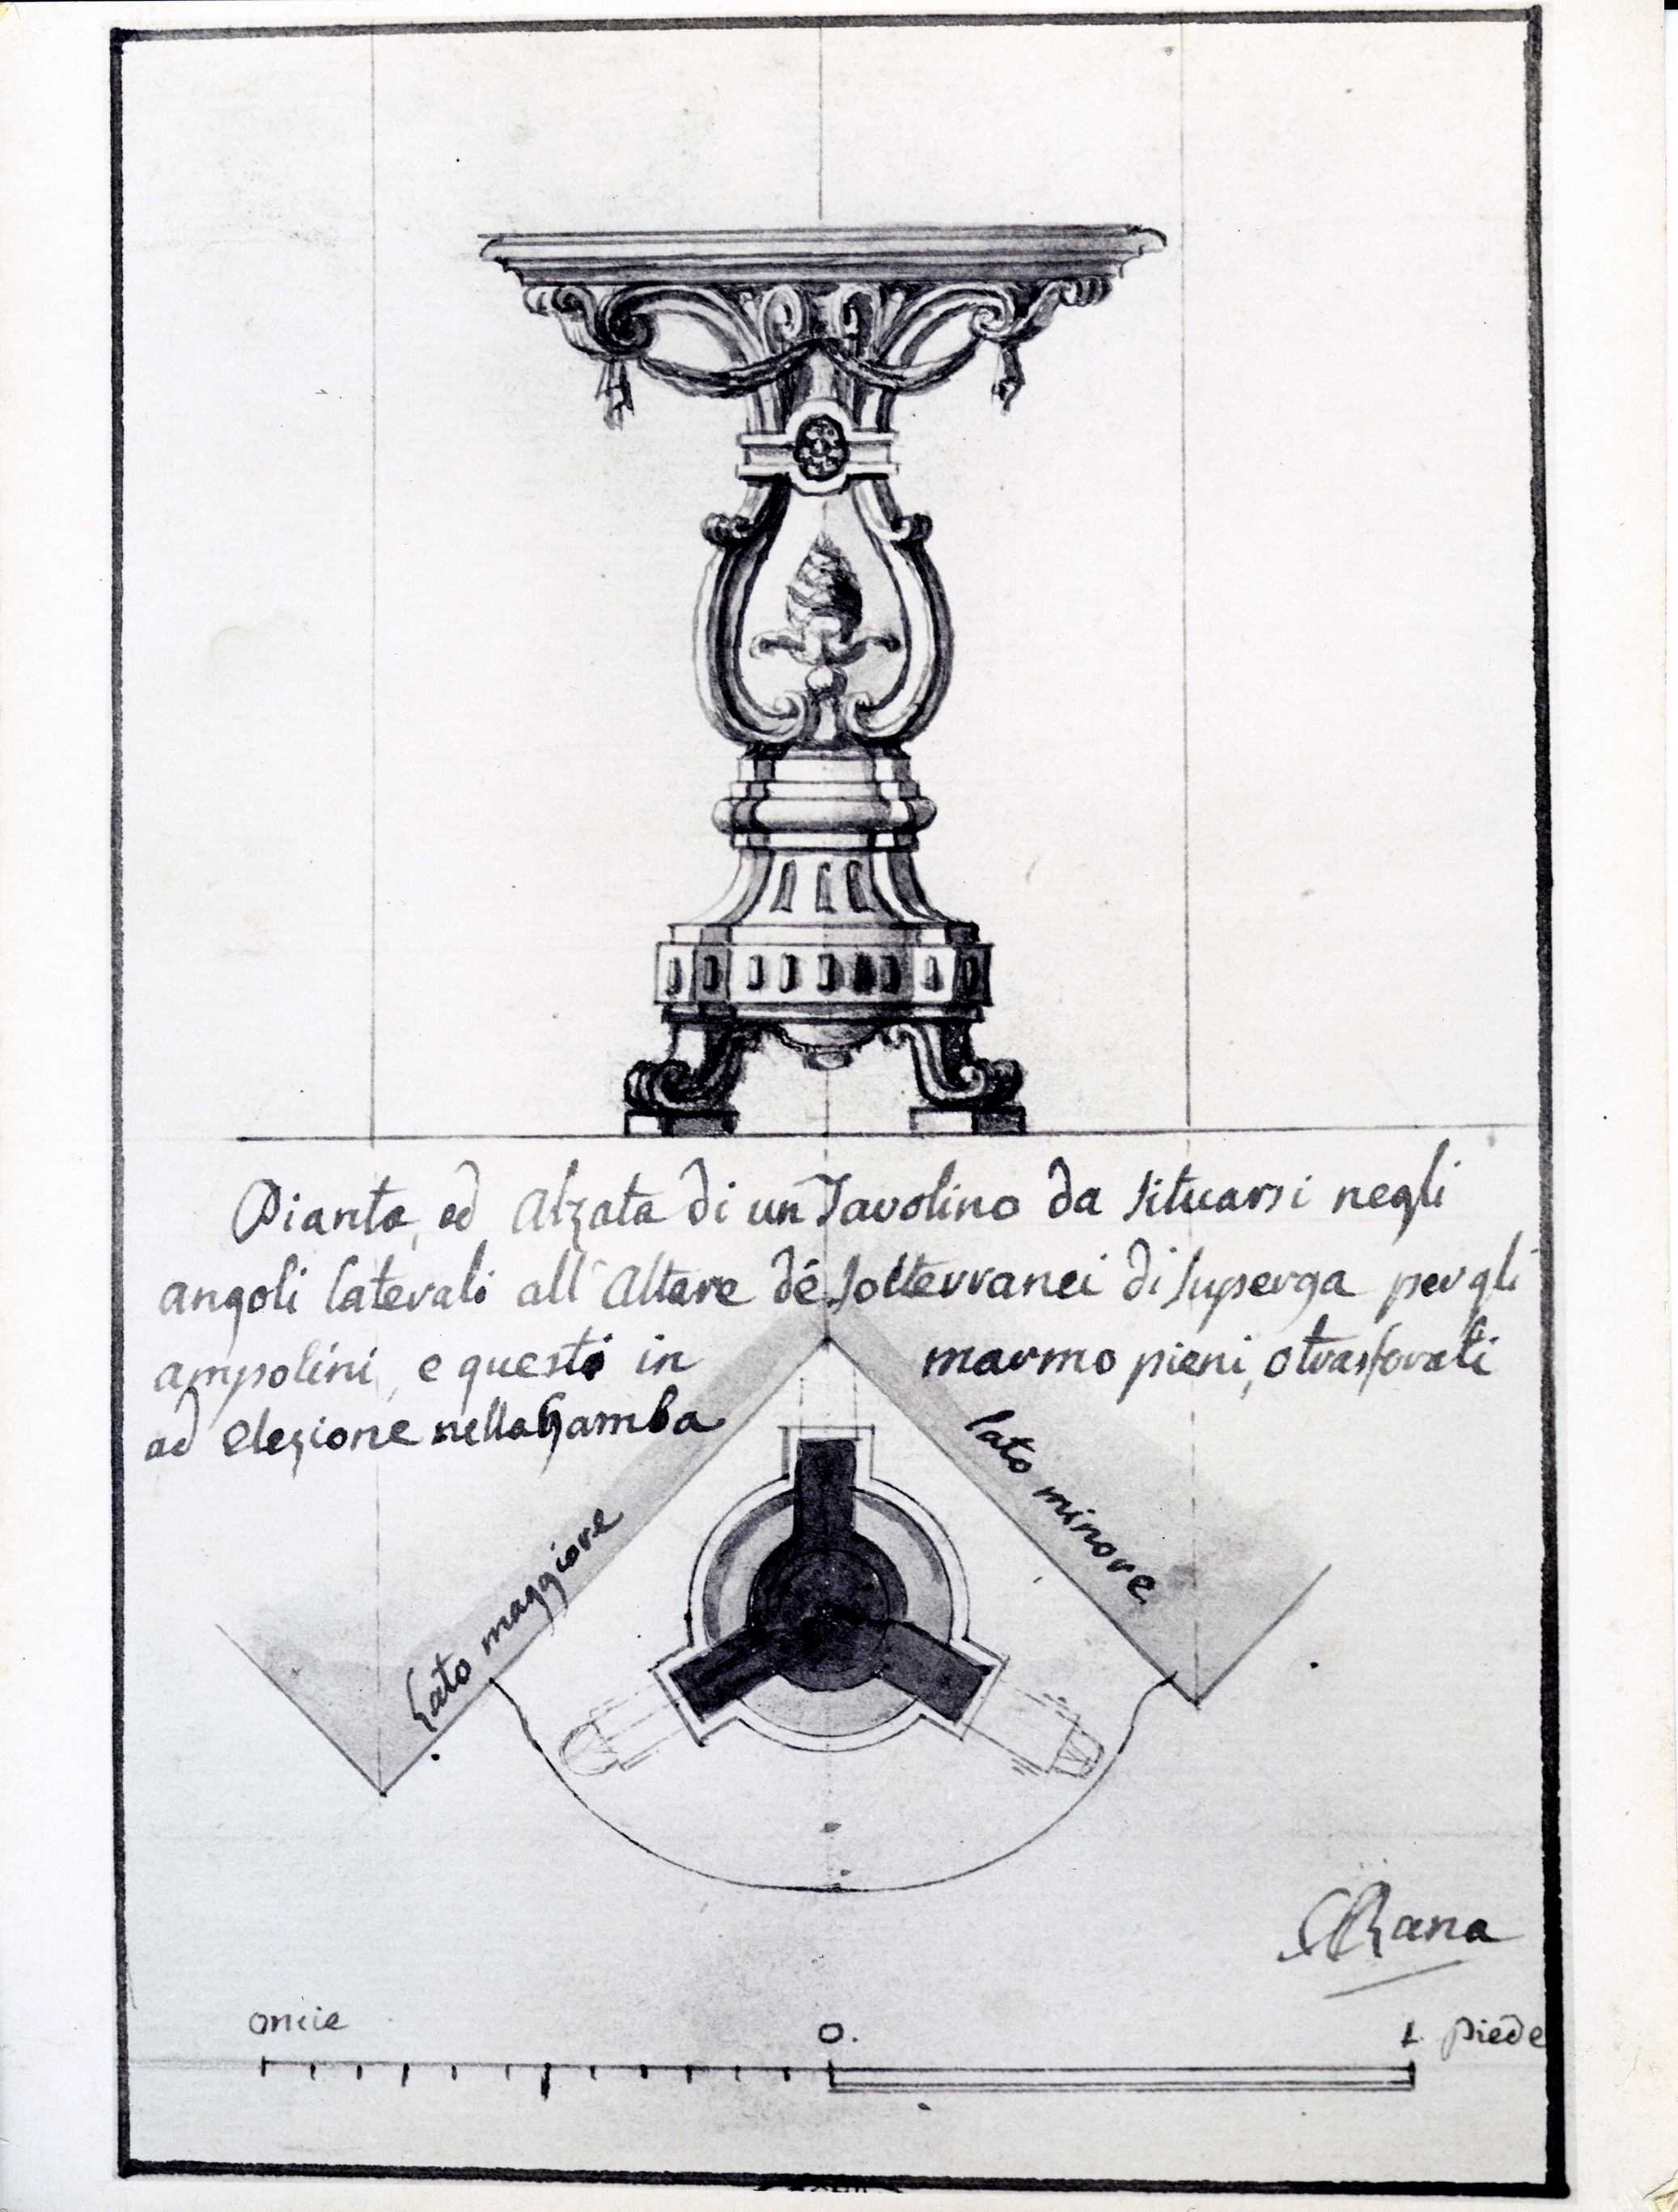 Pianta, ed Alzata di un Tavolino da situarsi negli
angoli laterali all'Altare dé Sotterranei di Superga per gli
ampolini, e questi in marmo pieni, o trasforati
ad elezione nella Gamba
lato maggiore
lato minore
Rana
oncie 0. 1. piede